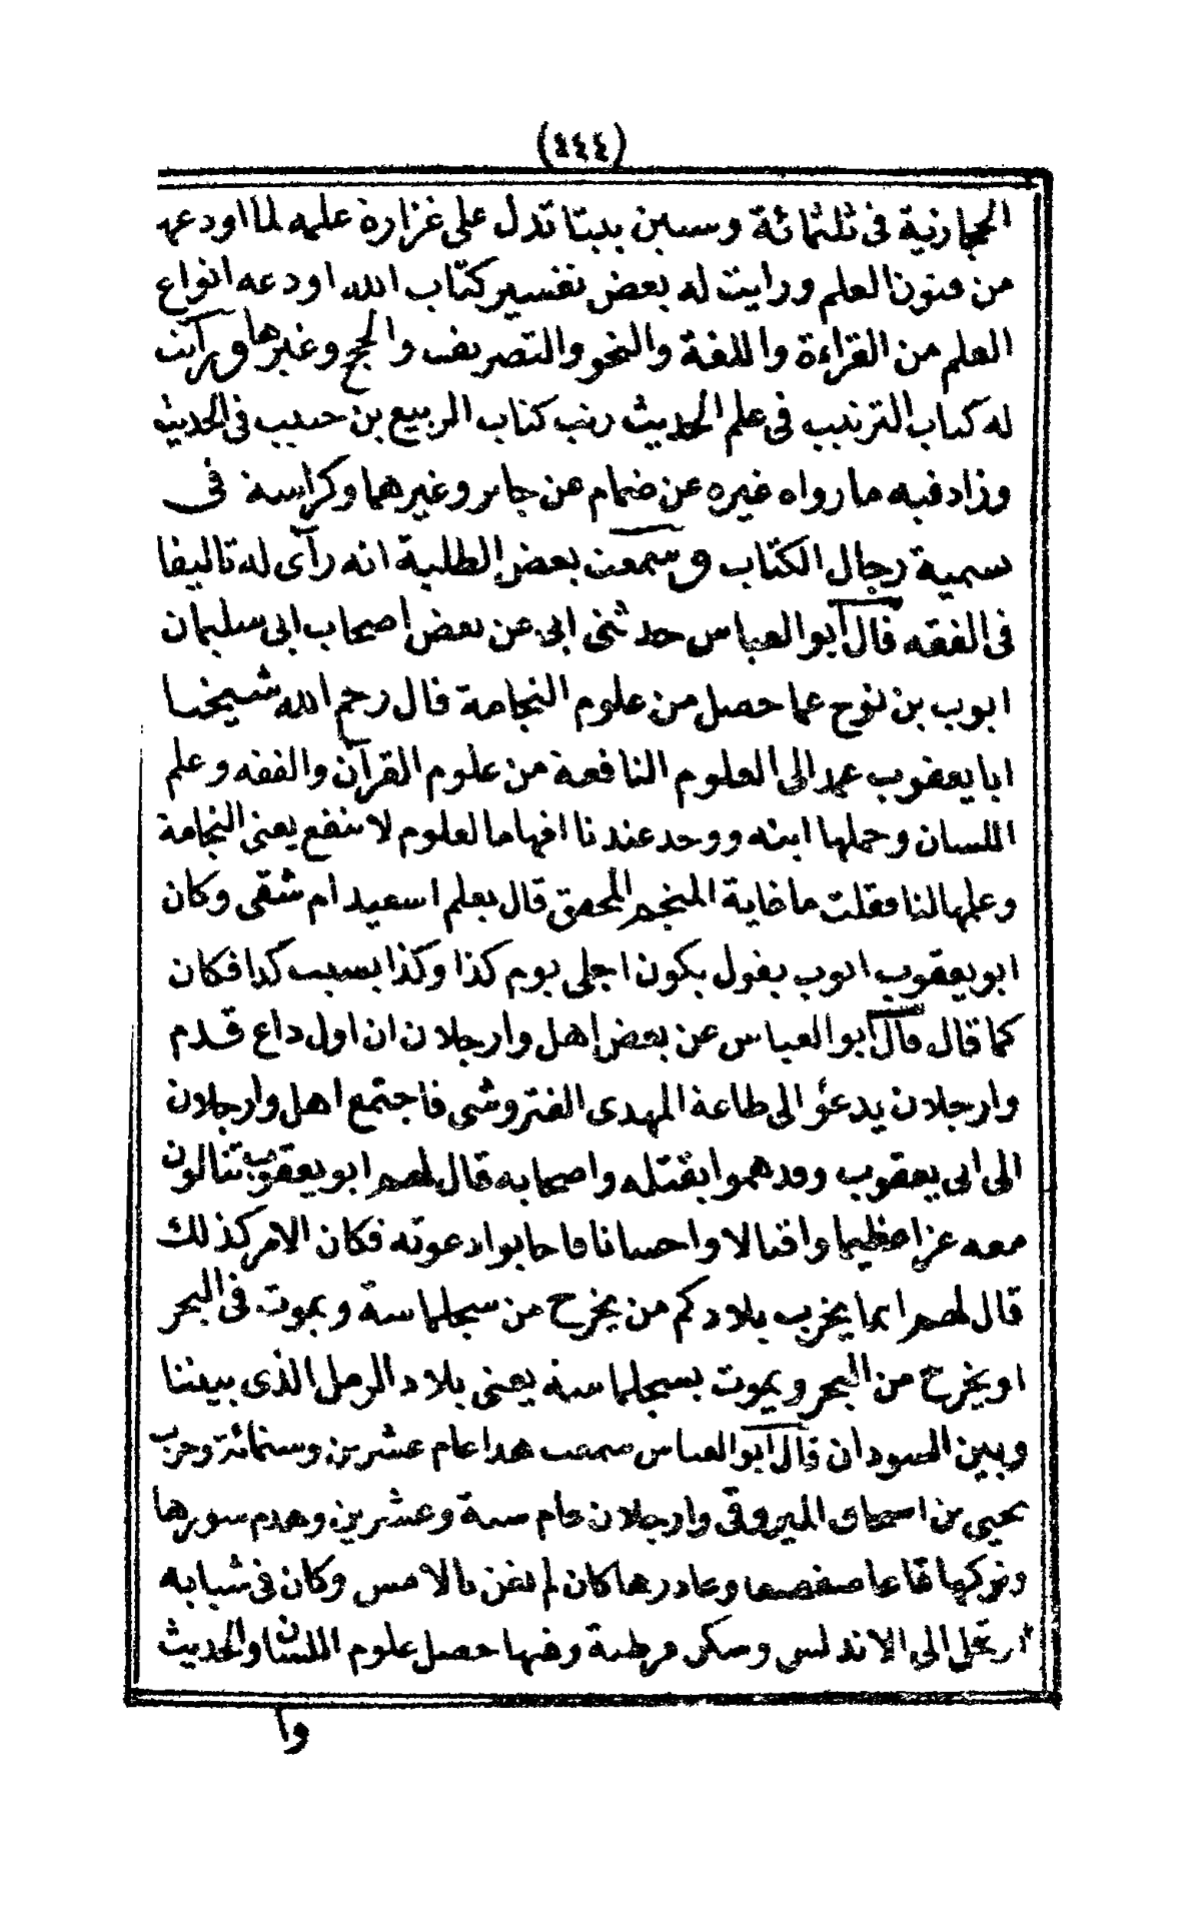 (٤٤٤)
الحجازية فى ثلثمائة وستين بيتا تدل على غزارة علمه لما اودعها
من فنون العلم ورايت له بعض تفسير كتاب الله اودعه انواع
العلم من القراءة واللغة والنحو والتصريف والحجج وغيرها ورأيت
له كتاب الترتيب فى علم الحديث رتب كتاب الربيع بن حبيب فى الحديث
وزاد فيه ما رواه غيره عن ضمام عن جابر وغيرهما وكراسة فى
تسمية رجال الكتاب وسمعت بعض الطلبة انه رآى له تاليفا
فى الفقه قال ابو العباس حدثنى ابى عن بعض اصحاب ابى سليمان
ايوب بن نوح عما حصل من علوم النجامة قال رحم الله شيخنا
ابا يعقوب عمد الى العلوم النافعة من علوم القرآن والفقه وعلم
اللسان وحملها ابنه ووجد عندنا افهاما لعلوم لا تنفع يعنى النجامة
وعلمها لنا فقلت ما غاية المنجم المحقق قال يعلم اسعيد ام شقى وكان
ابو يعقوب ايوب يقول يكون اجلى يوم كذا وكذا بسبب كذا فكان
كما قال قال ابو العباس عن بعض اهل وارجلان ان اول داع قدم
وارجلان يدعو الى طاعة المهدى الفتروشى فاجتمع اهل وارجلان
الى ابى يعقوب وقد هموا بقتله واصحابه قال لهم ابو يعقوب تنالون
معه عزا عظيما واقبالا واحسانا فاجابوا دعوته فكان الامر كذلك
قال لهم انما يخرب بلادكم من يخرج من سجلماسة ويموت فى البحر
او يخرج من البحر ويموت بسجلماسة يعنى بلاد الرمل الذى بيننا
وبين السودان قال ابو العباس سمعت هذا عام عشرين وستمائة وخرب
يحيى بن اسحاق الميروقى وارجلان عام ستة وعشرين وهدم سورها
وتركها قاعا صفصفا وغادرها كان لم تغن بالامس وكان فى شبابه
ارتحل الى الاندلس وسكن قرطبة وفيها حصل علوم اللسان والحديث
وا